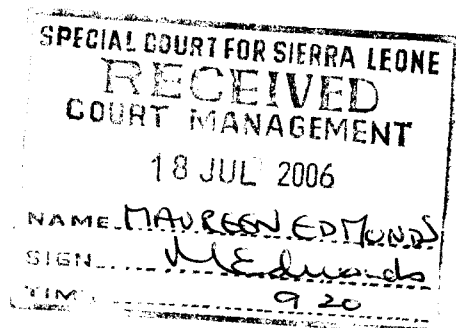 SPECIAL COURT FOR SIERRA LEONE
RECEIVED
COURT MANAGEMENT
18 JUL 2006
NAME MAUREEN EDMONDS
SIGN MEdmonds
TIME 9 20